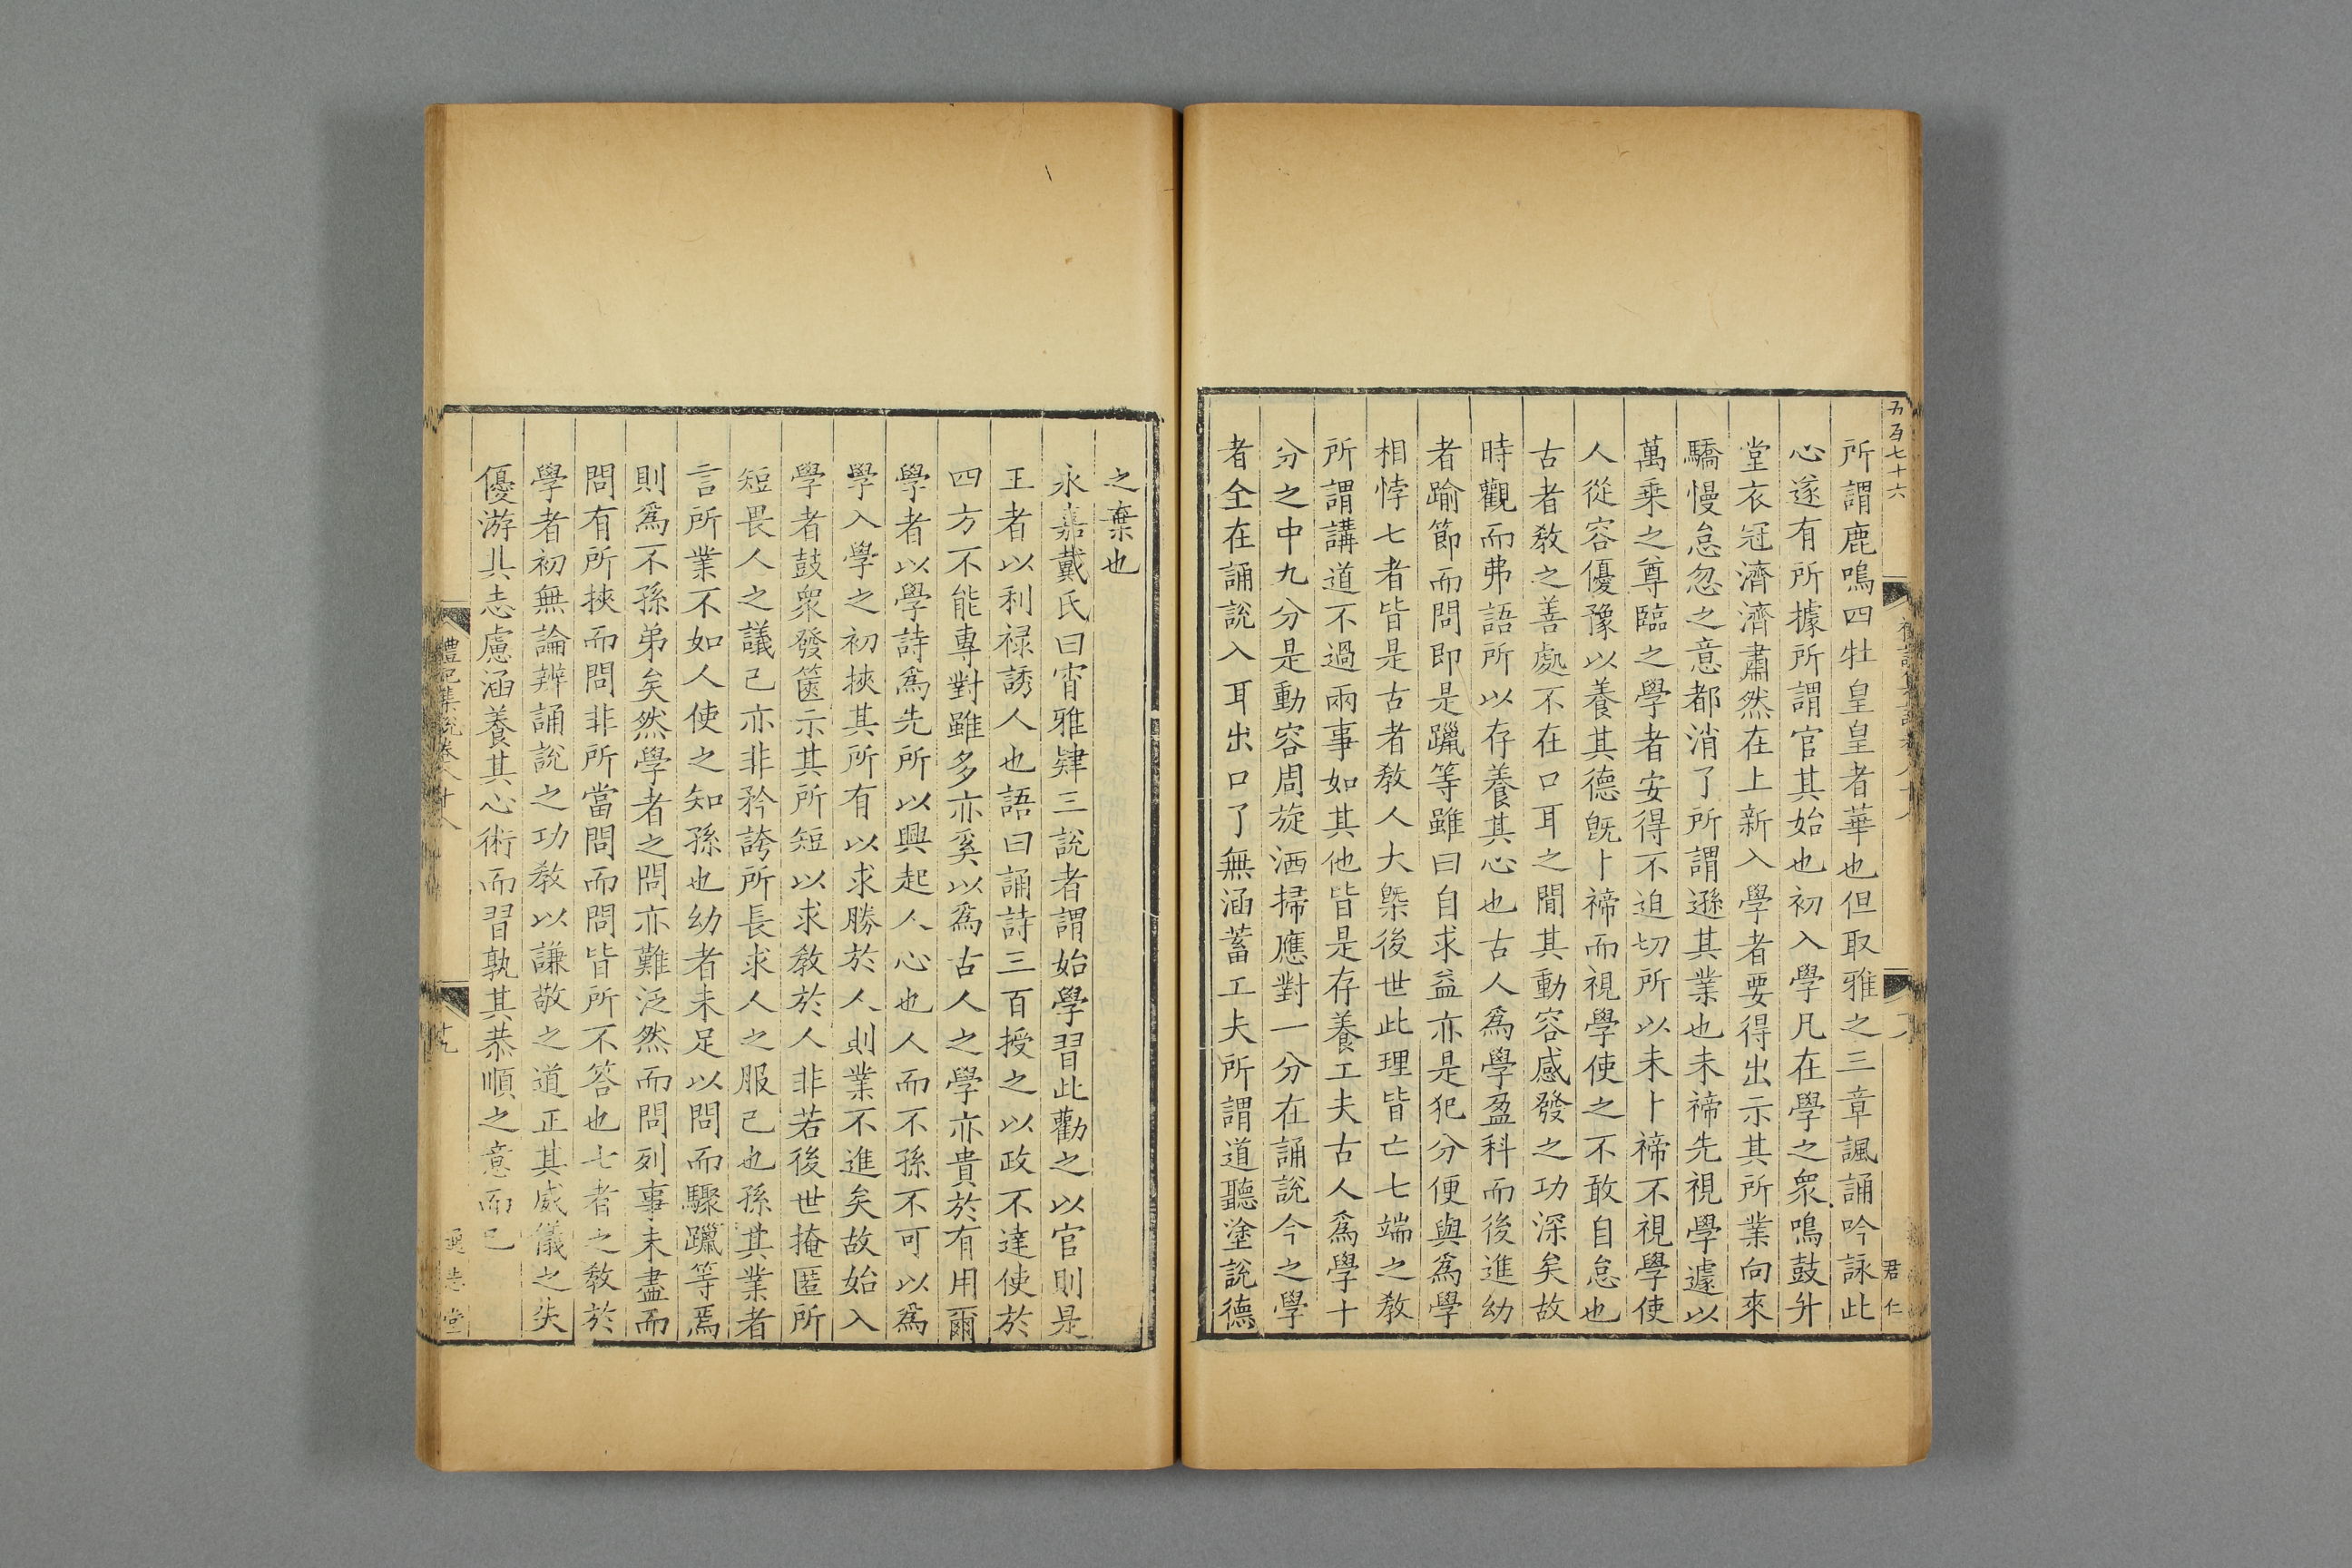 五百七十六
所謂鹿鳴四牡皇皇者華也但取雅之三章諷誦吟詠此
心遂有所據所謂官其始也初入學凡在學之衆鳴鼓升
堂衣冠濟濟肅然在上新入學者要得出示其所業向來
驕慢怠忽之意都消了所謂遜其業也未禘先視學遽以
萬乗之尊臨之學者安得不迫切所以未卜禘不視學使
人從容優豫以養其德旣卜禘而視學使之不敢自怠也
古者敎之善處不在口耳之間其動容感發之功深矣故
時觀而弗語所以存養其心也古人爲學盈科而後進幼
者踰節而問即是躐等雖曰自求益亦是犯分便與爲學
相悖七者皆是古者敎人大槩後世此理皆亡七端之敎
所謂講道不過兩事如其他皆是存養工夫古人爲學十
分之中九分是動容周旋洒掃應對一分在誦說今之學
者全在誦說入耳出口了無涵蓄工夫所謂道聽塗說德
君仁
之棄也
永嘉戴氏曰宵雅肄三說者謂始學習此勸之以官則是
王者以利禄誘人也語曰誦詩三百授之以政不達使於
四方不能專對雖多亦奚以爲古人之學亦貴於有用爾
學者以學詩爲先所以興起人心也人而不孫不可以爲
學入學之初挾其所有以求勝於人則業不進矣故始入
學者鼓衆發篋示其所短以求敎於人非若後世掩匿所
短畏人之議己亦非矜誇所長求人之服己也孫其業者
言所業不如人使之知孫也幼者未足以問而驟躐等焉
則爲不孫弟矣然學者之問亦難泛然而問列事未盡而
問有所挾而問非所當問而問皆所不答也七者之敎於
學者初無論辨誦說之功敎以謙敬之道正其威儀之失
優游其志慮涵養其心術而習孰其恭順之意而已
禮記集說卷八十八
通志堂